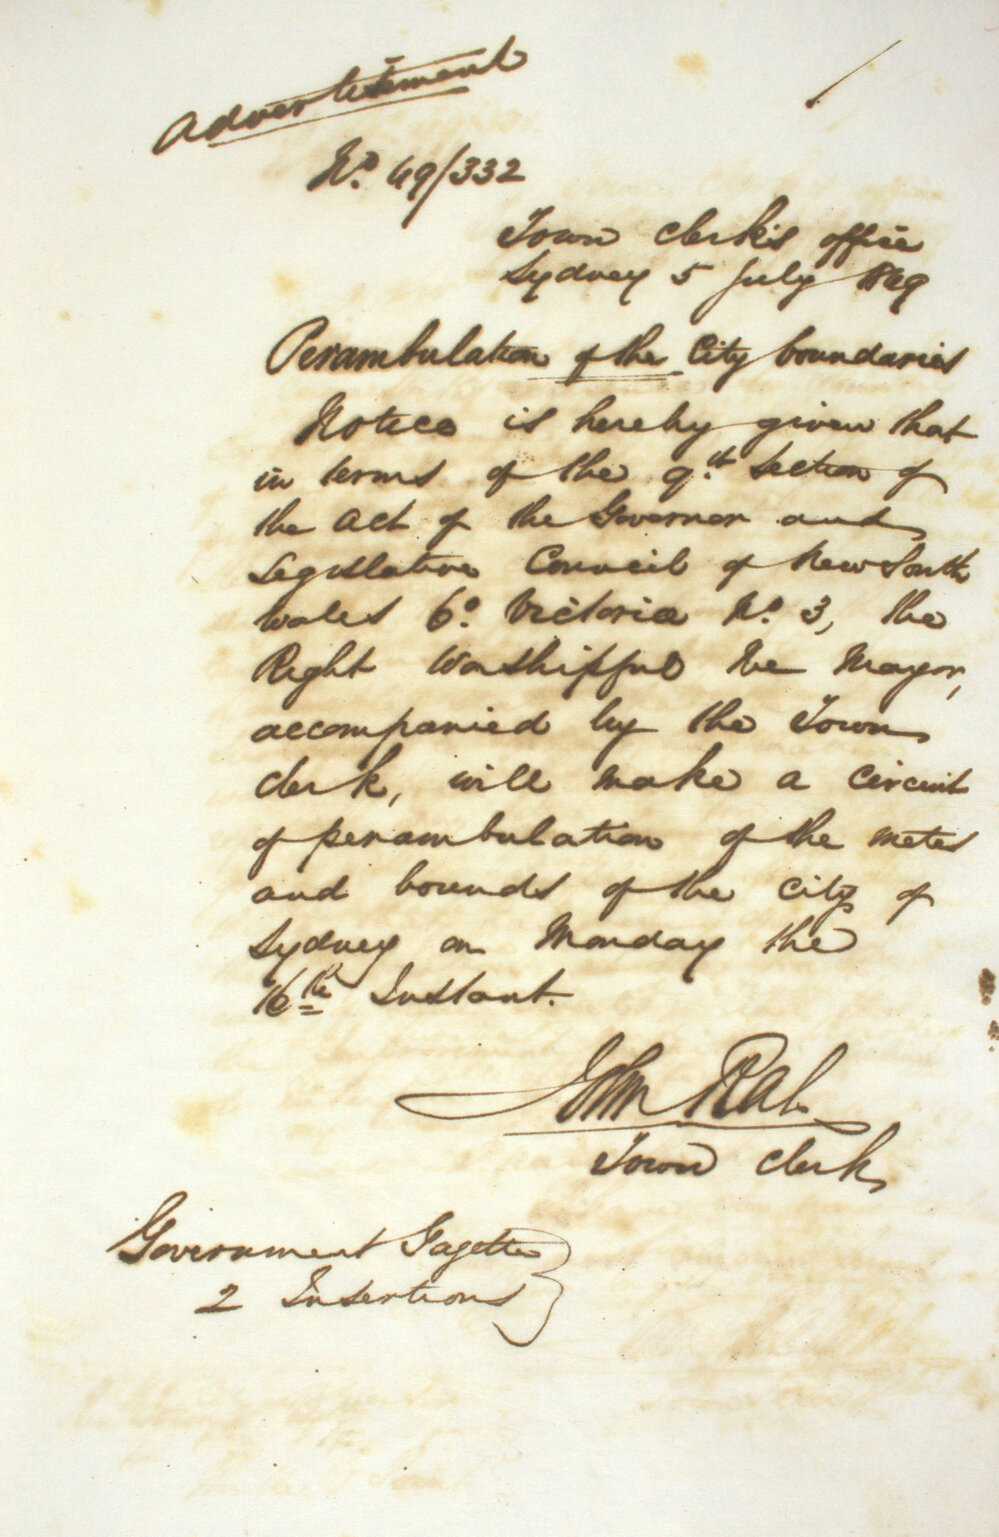 Advertisement
No. 49/332
Town Clerk's office
Sydney 5 July 1849
Perambulation of the City boundaries
Notice is hereby given that
in terms of the 9.th Section of
the Act of the Governor and
Legislative Council of New South
Wales 6o. Victoria No. 3, the
Right Worshipful the Mayor,
accompanied by the Town
Clerk, will make a circuit
of perambulation of the metes
and bounds of the City of
Sydney on Monday the
16th Instant.
John Rae
Town Clerk
Government Gazette
2 Insertions